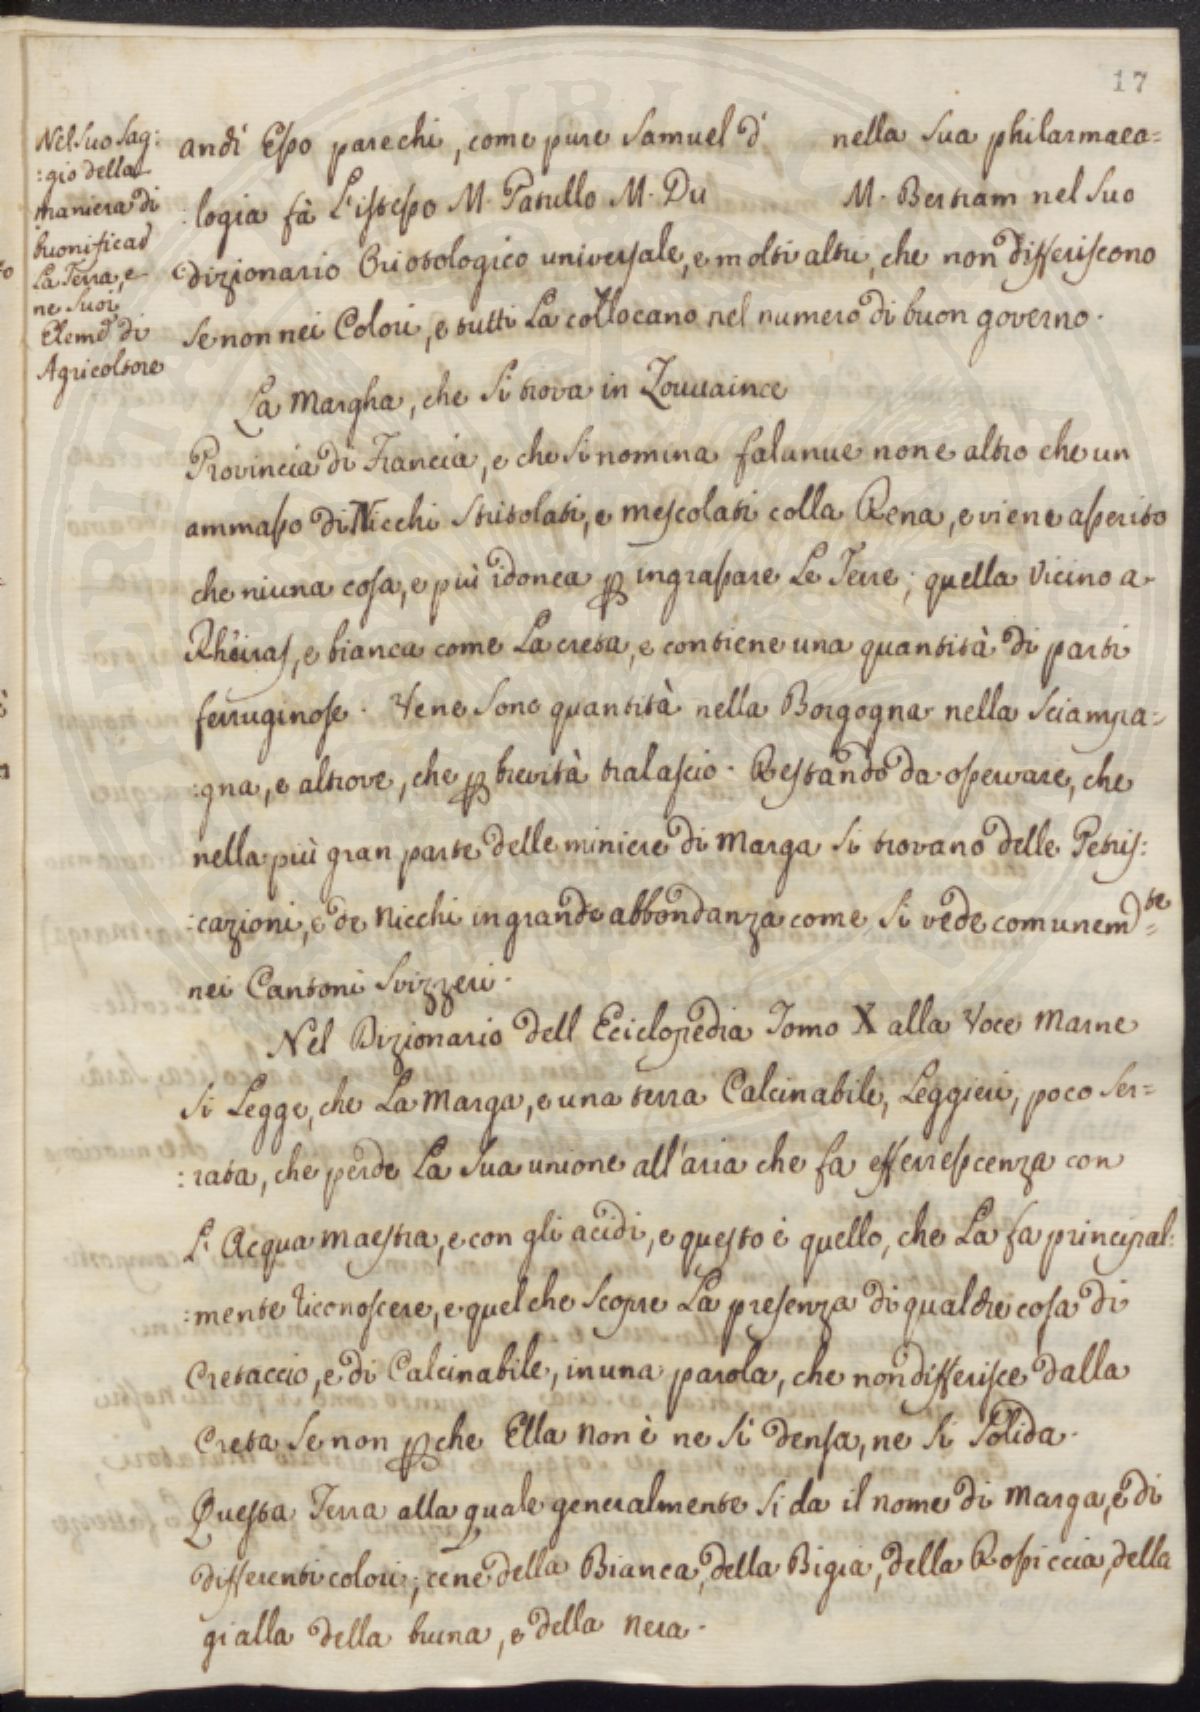 17
Nel suo Sag:
:gio della
maniera di
buonificar
La Terra, e
ne Suoi
Elem.ti di
Agricoltore
andi Esso parechi, come pure Samuel d' nella sua philarmaco=
:logia fà L'istesso M. Patullo M. Du M. Bertram nel Suo
dizionario Oriotologico universale, e molti altri, che non differiscono
Se non nei Colori, e tutti La collocano nel numero di buon governo.
La Margha, che Si trova in Tourraince
Provincia di Francia, e che Si nomina falunue non e altro che un
ammasso di Nicchi Stritolati, e mescolati colla Rena, e viene asserito
che niuna cosa, e più idonea p ingrassare Le Terre; quella Vicino a
e bianca come La creta, e contiene una quantità di parti
ferruginose. Vene Sono quantità nella Borgogna nella Sciampa=
:gna, e altrove, che p brevità tralascio. Restando da osservare, che
nella più gran parte delle miniere di Marga Si trovano delle Petris:
:cazioni, e de Nicchi in grande abbondanza come Si vede comunem.te=
nei Cantoni Svizzeri.
Nel Dizionario dell Eciclopedia Tomo X alla Voce Marne
Si Legge, che La Marga, e una terra Calcinabile, Leggieri, poco Ser=
:rata, che perde La Sua unione all'aria che fa efferrescenza con
L'Acqua maestra, e con gli acidi, e questo è quello, che La fa principal:
:mente riconoscere, e quel che Scopre La presenza di qualche cosa di
Cretaccio, e di Calcinabile, in una parola, che non differisce dalla
Creta Se non p che Ella non è ne Si densa, ne Si Solida.
Questa Terra alla quale generalmente Si da il nome di Marga, è di
differenti colori; cene della Bianca, della Bigia, della Rossiccia, della
gialla della bruna, e della nera.